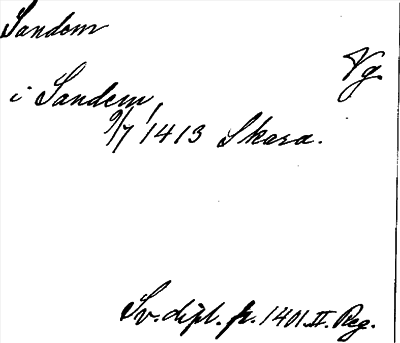 Sandem
Vg
i Sandem,
9/7 1413 Skara.
Sv. dipl. fr. 1401. II. Reg.